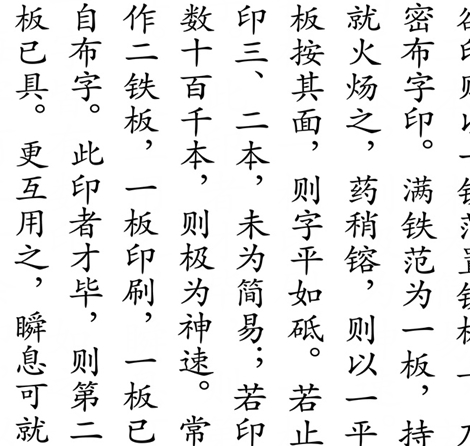 密布字印。满铁范为一板，持
就火炀之，药稍镕，则以一平
板按其面，则字平如砥。若止
印三、二本，未为简易；若印
数十百千本，则极为神速。常
作二铁板，一板印刷，一板已
自布字。此印者才毕，则第二
板已具。更互用之，瞬息可就